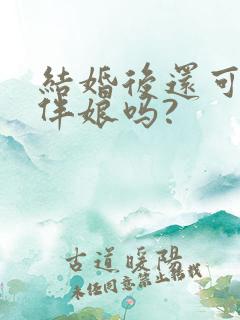 結婚後還可
伴娘吗?
古道暖陽
未经同意禁止轉找